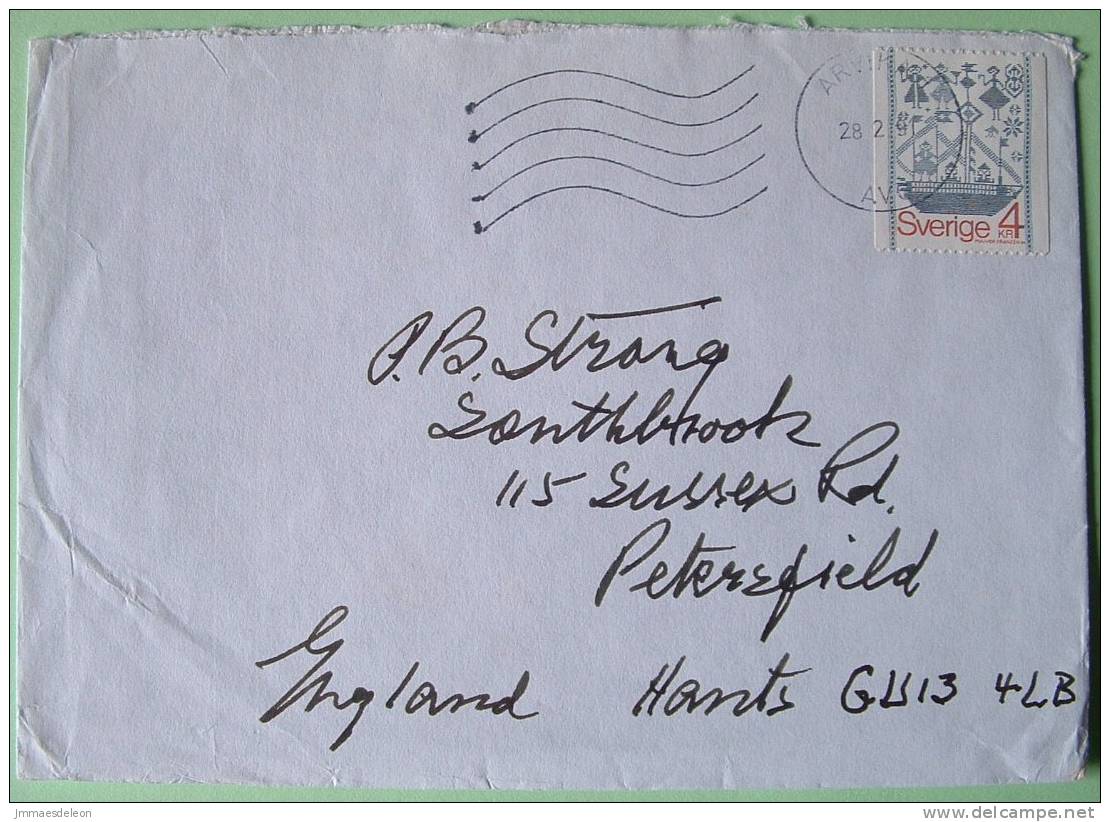 28 2
AV
Sverige 4
KR
P.B. Strong
Southbrook
115 Sussex Rd.
Petersfield
England Hants GU13 4LB
jmmaesdeleon
www.delcampe.net